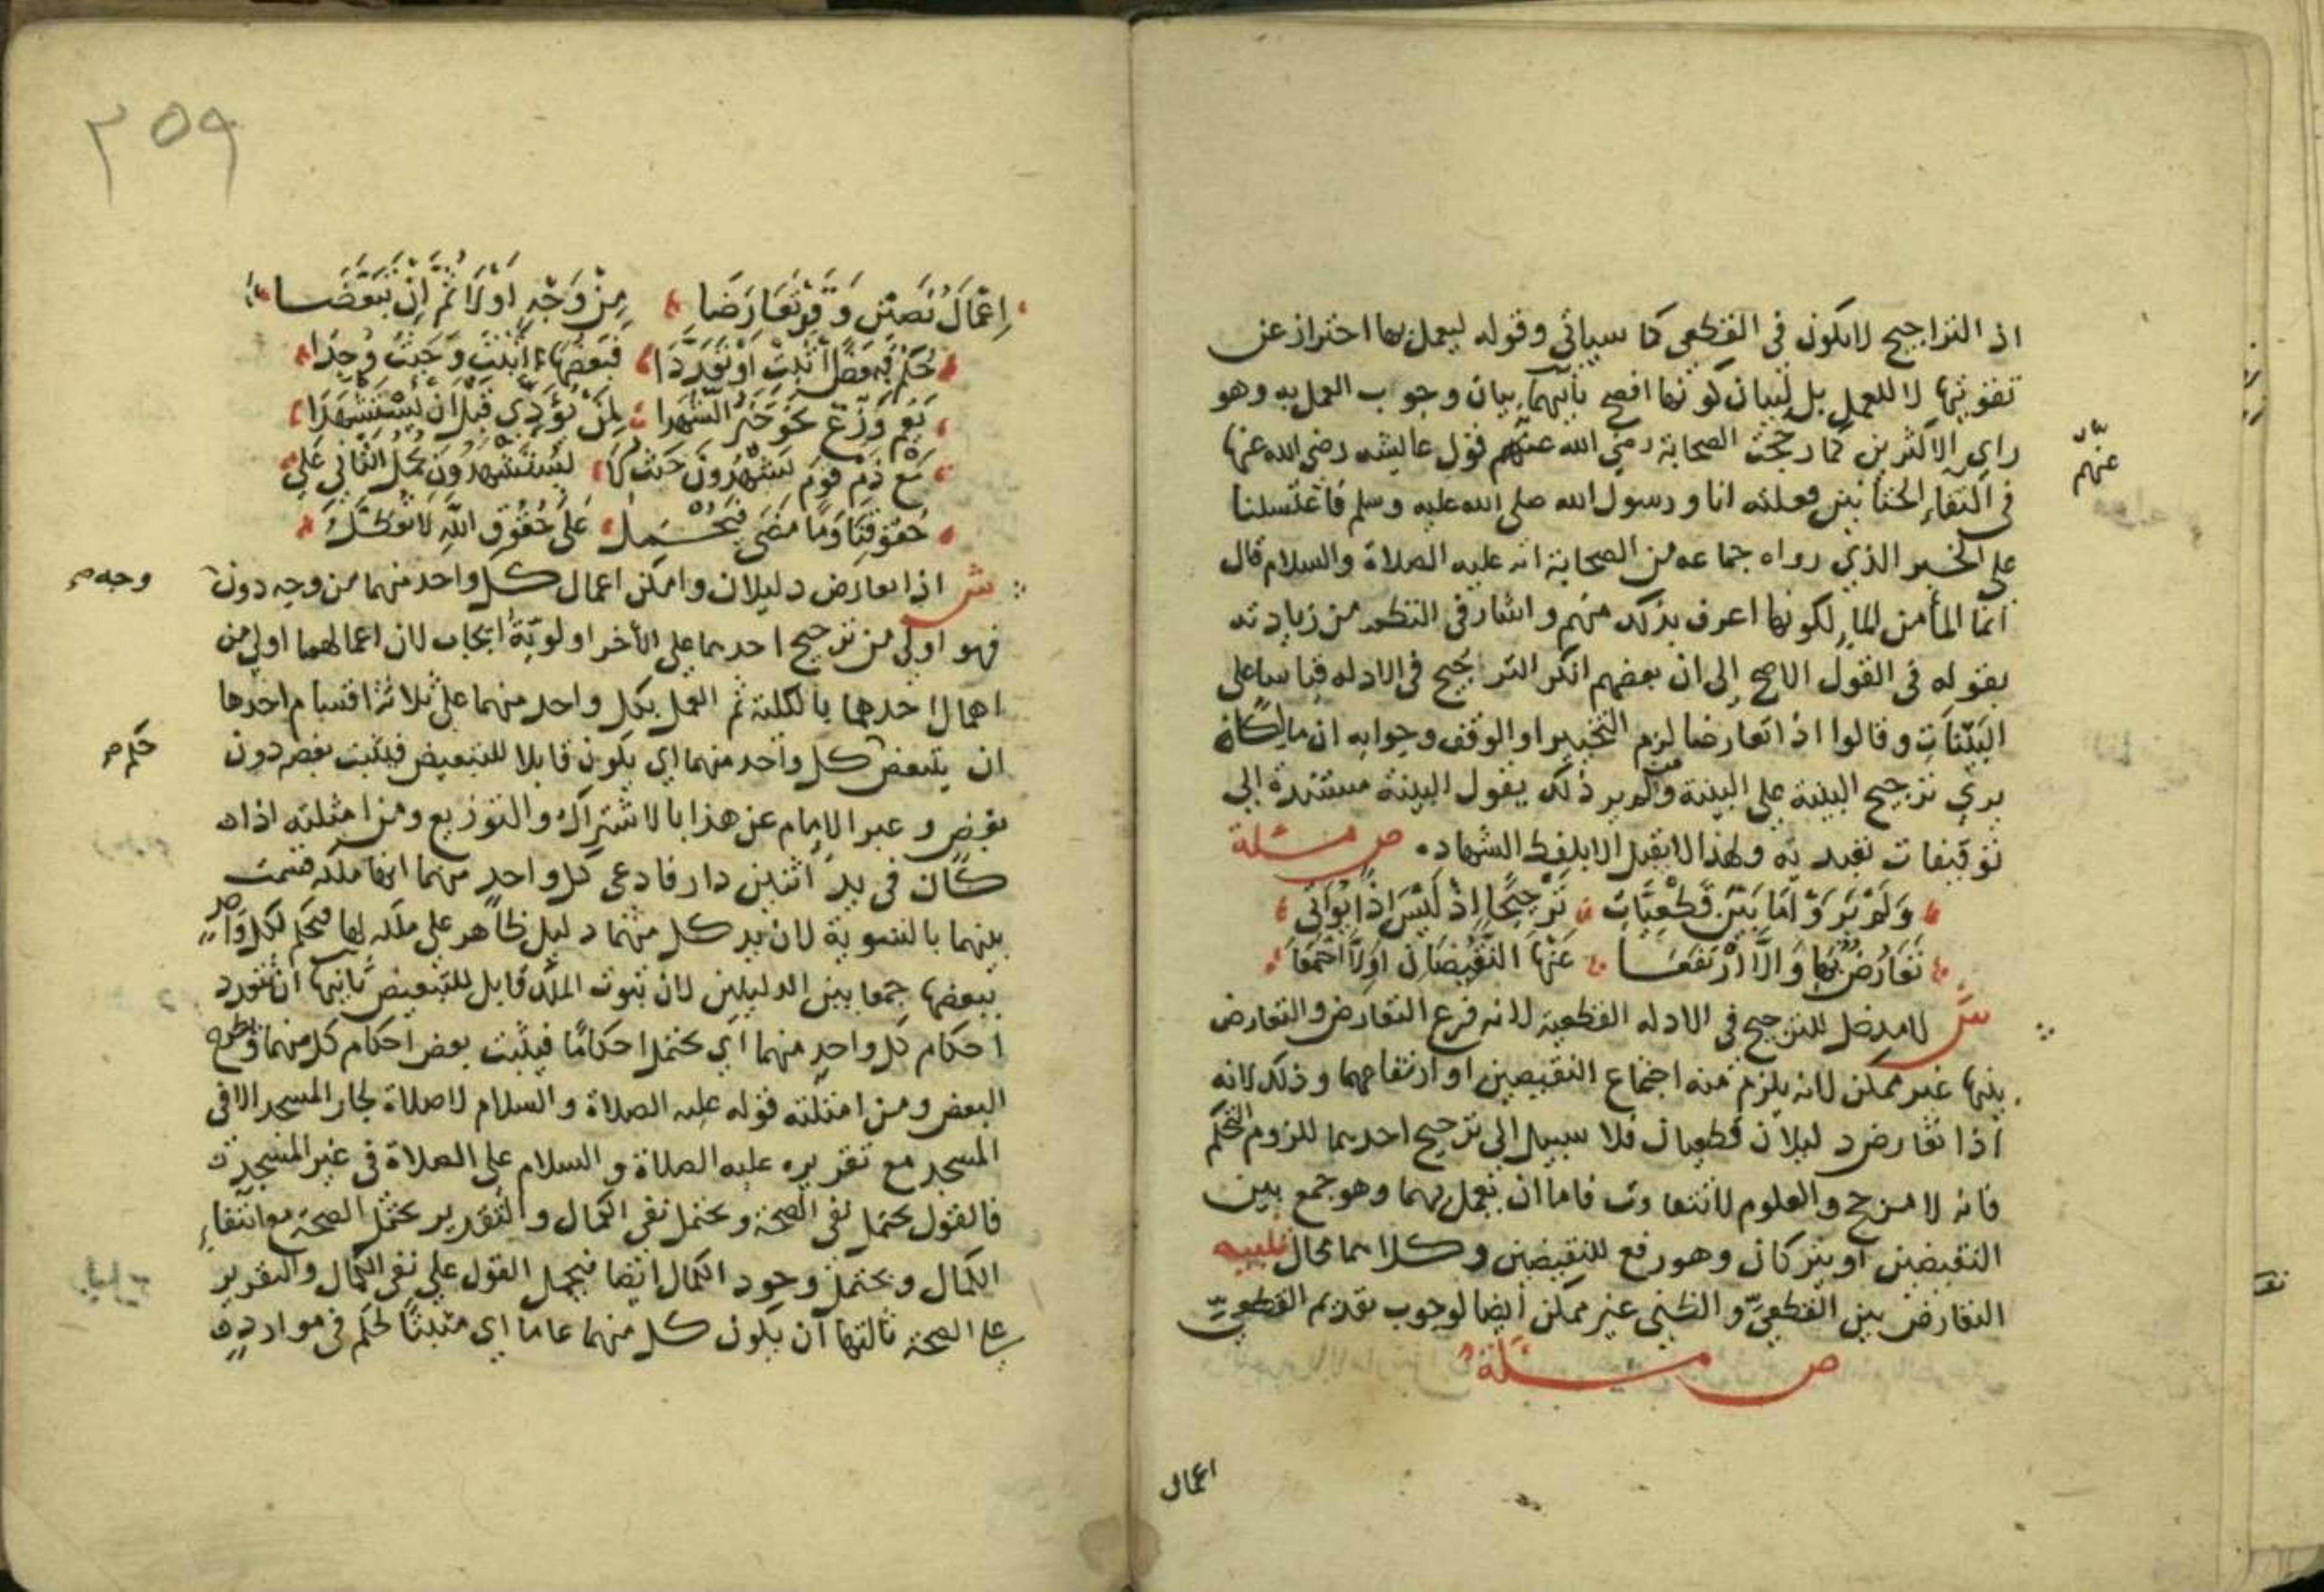 اذ التراجيح لا يكون في القطعي كما سياتي وقوله ليعمل بها احتراز عن
تقويتها لا للعمل بل لبيان كونها افصح ثانيهما بيان وجوب العمل به وهو
راي الاكثرين كما رجحت الصحابة رضي الله عنهم قول عايشه رضي الله عنها
عنهم
في التقاء الختانين فعلته انا ورسول الله صلى الله عليه وسلم فاغتسلنا
على الخبر الذي رواه جماعه من الصحابة انه عليه الصلاة والسلام قال
انما الماء من الماء لكونها اعرف بذلك منهم واشار في النظم من زيادته
بقوله في القول الاصح إلى ان بعضهم انكر الترجيح في الادله قياسا على
البينات وقالوا اذا تعارضا لزم التخيير او الوقف وجوابه ان مالكا
يرى ترجيح البينة على البينة ومن لم ير ذلك يقول البينة مستندة إلى
توقيفات تعبديه ولهذا لا يقبل الا بلفظ الشهاده ص مسئلة
وَلَمْ يَرَوْا مَا بَيْنَ قَطْعِيَّاتِ تَرْجِيحًا اِذْ لَيْسَ اِذًا بُوَاتِي
تَعَارُضٌ بها وَالَّا ارْتَفَعَا عَنْهَا النَّقِيضَانِ اَوِلَا اجْتَمَعَا
ش لا مدخل للترجيح في الادله القطعية لانه فرع التعارض والتعارض
بينها غير ممكن لانه يلزم منه اجتماع النقيضين او ارتفاعهما وذلك لانه
اذا تعارض دليلان قطعيان فلا سبيل إلى ترجيح احدهما للزوم التحكم
فانه لا مرجح والعلوم لا تتفاوت فاما ان يعمل بهما وهو جمع بين
النقيضين او يتركان وهو رفع للنقيضين وكلاهما محال تنبيه
التعارض بين القطعي والظني غير ممكن أيضا لوجوب تقديم القطعي
ص مسئلة
اعمال
٢٥٩
اِعْمَالُ نَصَّيْنِ وَقَدْ تَعَارَضَا مِنْ وَجْهٍ اَوْلَى ثُمَّ اِنْ تَبَعَّضَا
حُكْمٌ فَبَعْضًا اثْبِتْ اَوْ تَعَدَّدَا فَبَعْضَهَا اثْبِتْ وَحَيْثُ وُجِدَا
يَعُمُّ وَزِّعْ نَحْوَ خَيْرُ الشُّهَدَا لِمَنْ يُؤَدِّي قَبْلَ اَنْ يُسْتَشْهَدَا
مَعْ ذَمِّ قَوْمٍ يَشْهَدُونَ حَيْثُ لَا يُسْتَشْهَدُونَ يُحْمَلُ الثَّانِي عَلَى
حُقُوقِنَا وَمَا مَضَى فَيُحْمَلُ عَلَى حُقُوقِ اللّٰهِ لَا تُعَطَّلُ
ش اذا تعارض دليلان وامكن اعمال كل واحد منهما من وجه دون
وجه
فهو اولى من ترجيح احدهما على الأخر اولويّة ايجاب لان اعمالهما اولى من
اهمال احدهما بالكلية ثم العمل بكل واحد منهما على ثلاثة اقسام احدها
ان يتبعض كل واحد منهما اي يكون قابلا للتبعيض فيثبت بعضه دون
حكم
بعض وعبر الامام عن هذا بالاشتراك والتوزيع ومن امثلته اذا
كان في يد اثنين دار فادعى كل واحد منهما انها ملكه قسمت
بينهما بالتسوية لان يد كل منهما دليل ظاهر على ملكه لها فيحكم لكل واحد
ببعضها جمعا بين الدليلين لان ثبوت الملك قابل للتبعيض ثانيها ان تتعدد
احكام كل واحد منهما اي يحتمل احكامًا فيثبت بعض احكام كل منهما ويطرح
البعض ومن امثلته قوله عليه الصلاة والسلام لا صلاة لجار المسجد الا في
المسجد مع تقريره عليه الصلاة والسلام على الصلاة في غير المسجد
فالقول يحتمل نفي الصحة ويحتمل نفي الكمال والتقرير يحتمل الصحة مع انتفاء
الكمال ويحتمل وجود الكمال ايضا فيحمل القول على نفي الكمال والتقرير
على الصحة ثالثها ان يكون كل منهما عاما اي مثبتا لحكم في موارد